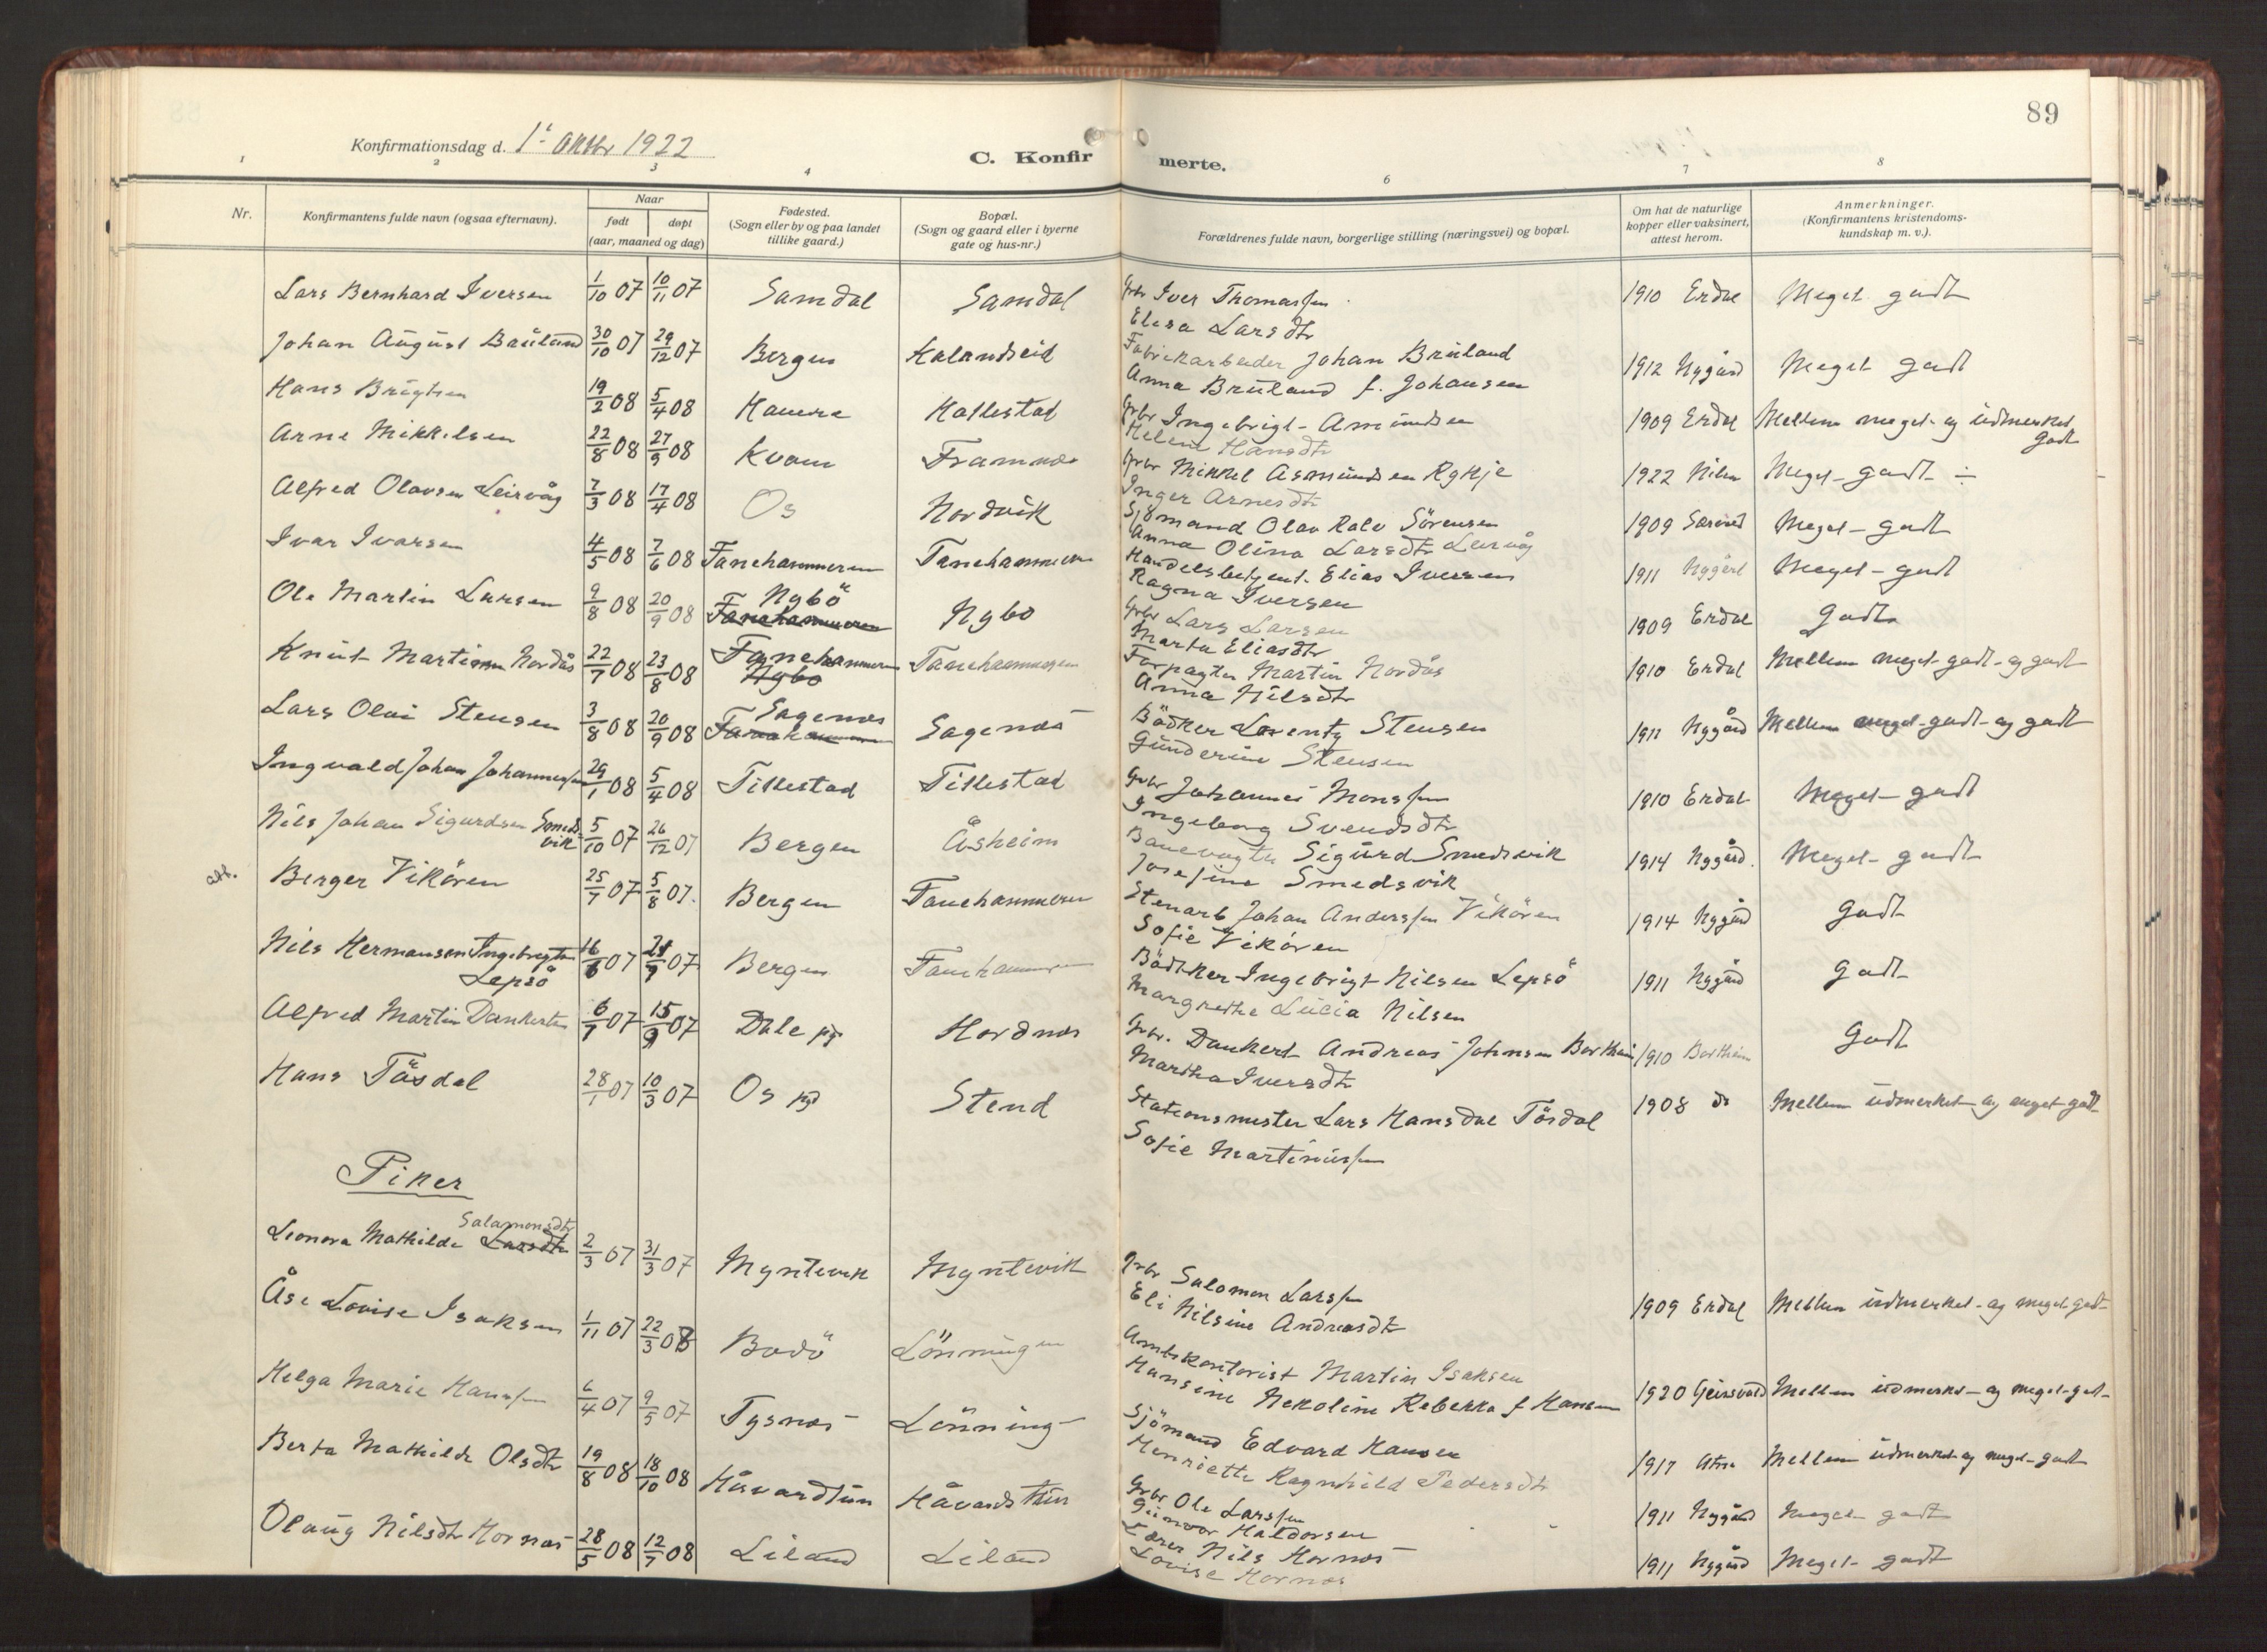 89
Konfirmationsdag d. 1ste Oktbr 1922
C. Konfirmerte.
1 2 3 4 6 7 8
Nr.
Konfirmantens fulde navn (ogsaa efternavn).
Naar
født døpt
(aar, maaned og dag)
Fødested.
(Sogn eller by og paa landet
tillike gaard.)
Bopæl.
(Sogn og gaard eller i byerne
gate og hus-nr.)
Forældrenes fulde navn, borgerlige stilling (næringsvei) og bopæl.
Om hat de naturlige
kopper eller vaksinert,
attest herom.
Anmerkninger.
(Konfirmantens kristendoms-
kundskap m. v.).
Lars Bernhard Iversen 1/10 07 10/11 07 Samdal Samdal Grbr Iver Thomassen 1910 Erdal Meget godt
Elesa Larsdtr
Johan August Bruland 30/10 07 29/12 07 Bergen Kalandseid Fabrikarbeider Johan Bruland 1912 Nygård Meget godt
Anna Bruland f. Johansen
Hans Brigtsen 19/2 08 5/4 08 Hallestad Grbr Ingebrigt Amundsen 1909 Erdal Mellem meget- og udmerket
godt
Helene Hansdtr
Arne Mikkelsen 22/8 08 27/9 08 Kvam Framnæs Grbr Mikkel Asmundsen Rykje 1922 Meget godt ÷
Inger Arnesdtr
Alfred Olavsen Leirvåg 7/3 08 17/4 08 Os Nordvik Sjømand Olav Ralv Sörensen 1909 Meget godt
Anna Olina Larsdtr Leirvåg
Ivar Ivarsen 4/5 08 7/6 08 Fanehammeren Fanehammeren Handelsbetjent Elias Iversen 1911 Nygård Meget godt
Ragna Iversen
Ole Martin Larsen 9/8 08 20/9 08 Nybö Fanehammeren Nybö Grbr Lars Larsen 1909 Erdal Godt
Marta Eliasdtr
Knut Martin Nordås 22/7 08 23/8 08 Fanehammeren Nybö Fanehammeren Forpagter Martin Nordås 1910 Erdal Mellem meget godt og godt
Anna Nilsdtr
Lars Olai Stensen 3/8 08 20/9 08 Sagenæs Fanehammeren Sagenæs Bödker Lorentz Stensen 1911 Nygård Mellem meget godt og godt
Gunderine Stensen
Ingvald Johan Johannessen 29/1 08 5/4 08 Titlestad Titlestad Grbr Johannes Monssen 1910 Erdal Meget godt
Ingeborg Svendsdtr
Nils Johan Sigurdsen Smeds-
vik 5/10 07 26/12 07 Bergen Åsheim Banevogter Sigurd Smedsvik 1914 Nygård. Meget godt
Josefine Smedsvik
att. Berger Vikören 25/7 07 5/8 07. Bergen Fanehammeren Stenarb Johan Anderssen Vikören 1914 Nygård Godt
Sofie Vikören
Nils Hermansen Ingebrigtsen
Lepsö 16/6 07 21/7 07 Bergen Fanehammeren Bödker Ingebrigt Nilsen Lepsö 1911 Nygård Godt
Margrethe Lucia Nilsen
Alfred Martin Dankertsen 6/7 07 15/9 07 Dale pgj Hordnæs Grbr. Dankert Andreas Johnsen Bortheim 1910 Bortheim Godt
Martha Iversdtr
Hans Tösdal 28/1 07 10/3 07 Os pgj Stend Stationsmester Lars Hansdal Tösdal 1908 do Mellem udmerket og meget godt
Sofie Martinussen
Piker
Leonora Mathilde Larsdtr Salamonsdtr 2/3 07 31/3 07 Myrtevik Myrtevik Grbr Salomon Larssen 1909 Erdal Mellem udmerket og meget godt
Eli Nilsine Andreasdtr
Åse Lovise Isaksen 1/11 07 22/3 08 Bodö Lönningen Amtskontorist Martin Isaksen 1920 Mellem udmerket og meget godt
Hansine Nekoline Rebekka f Hansen
Helga Marie Hanssen 6/4 07 9/5 07 Tysnæs Lönning Sjömand Edvard Hansen 1917 Mellem udmerket og meget godt
Henriette Ragnhild Pedersdtr
Berta Mathilde Olsdtr 19/8 08 18/10 08 Håvardtun Håvardstun Grbr Ole Larssen 1911 Nygård Meget godt
Gunvor Haldorsen
Olaug Nilsdtr Hornæs 28/5 08 12/7 08 Liland Liland Lærer Nils Hornæs 1911 Nygård Meget godt
Lovise Hornæs